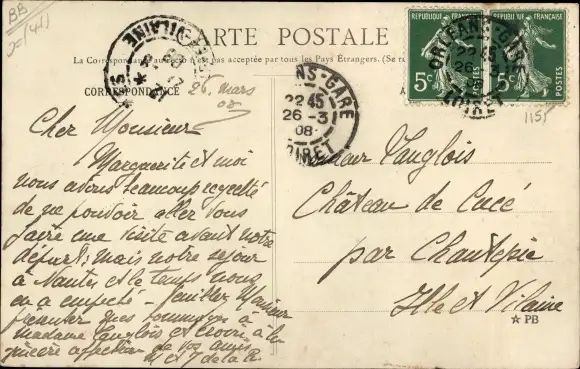 BB
CARTE POSTALE
La Correspondance au recto n'est pas acceptée par tous les Pays Étrangers. (Se
CORRESPONDANCE
26 mars
08
Cher Monsieur
Marguerite et moi
nous avons beaucoup regretté
de ne pouvoir aller vous
faire une visite avant notre
départ; mais notre séjour
à Nantes et le temps nous
en a empêché - Veuillez Monsieur
présenter mes hommages à
Madame Langlois et croire à la
sincère affection de vos amis
M et J de la
Monsieur Langlois
Château de Cucé
par Chantepie
Ille et Vilaine
★ PB
RÉPUBLIQUE FRANÇAISE
5c
POSTES
RÉPUBLIQUE FRANÇAISE
5c
POSTES
ORLÉANS-GARE
22 45
26
LOIRET
ORLÉANS-GARE
22 45
26-3
08
LOIRET
VILAINE
1151